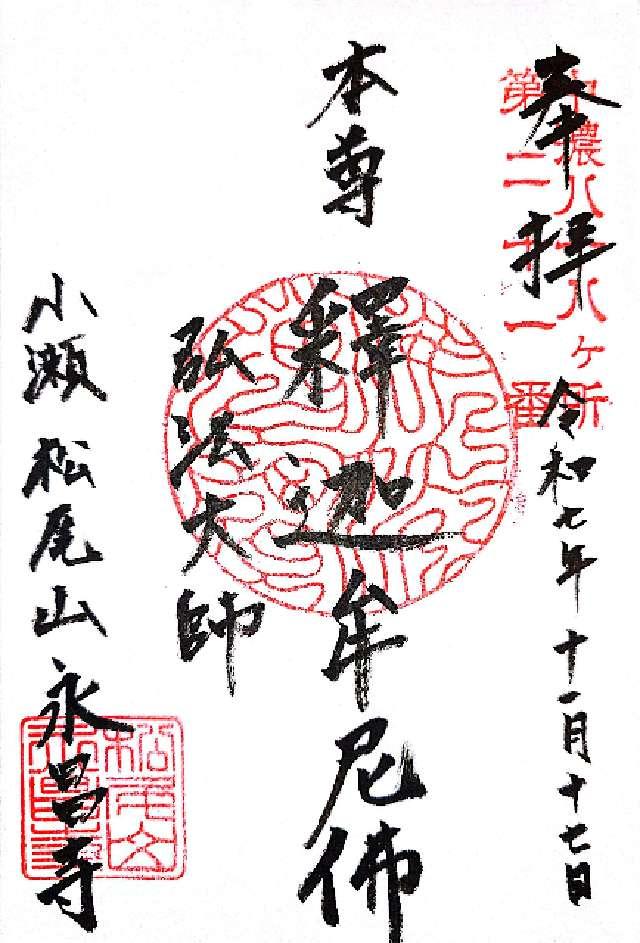 奉拝
中濃八十八ヶ所
第二十一番
令和七年十一月十七日
本尊
釋迦牟尼佛
弘法大師
小瀬 松尾山 永昌寺